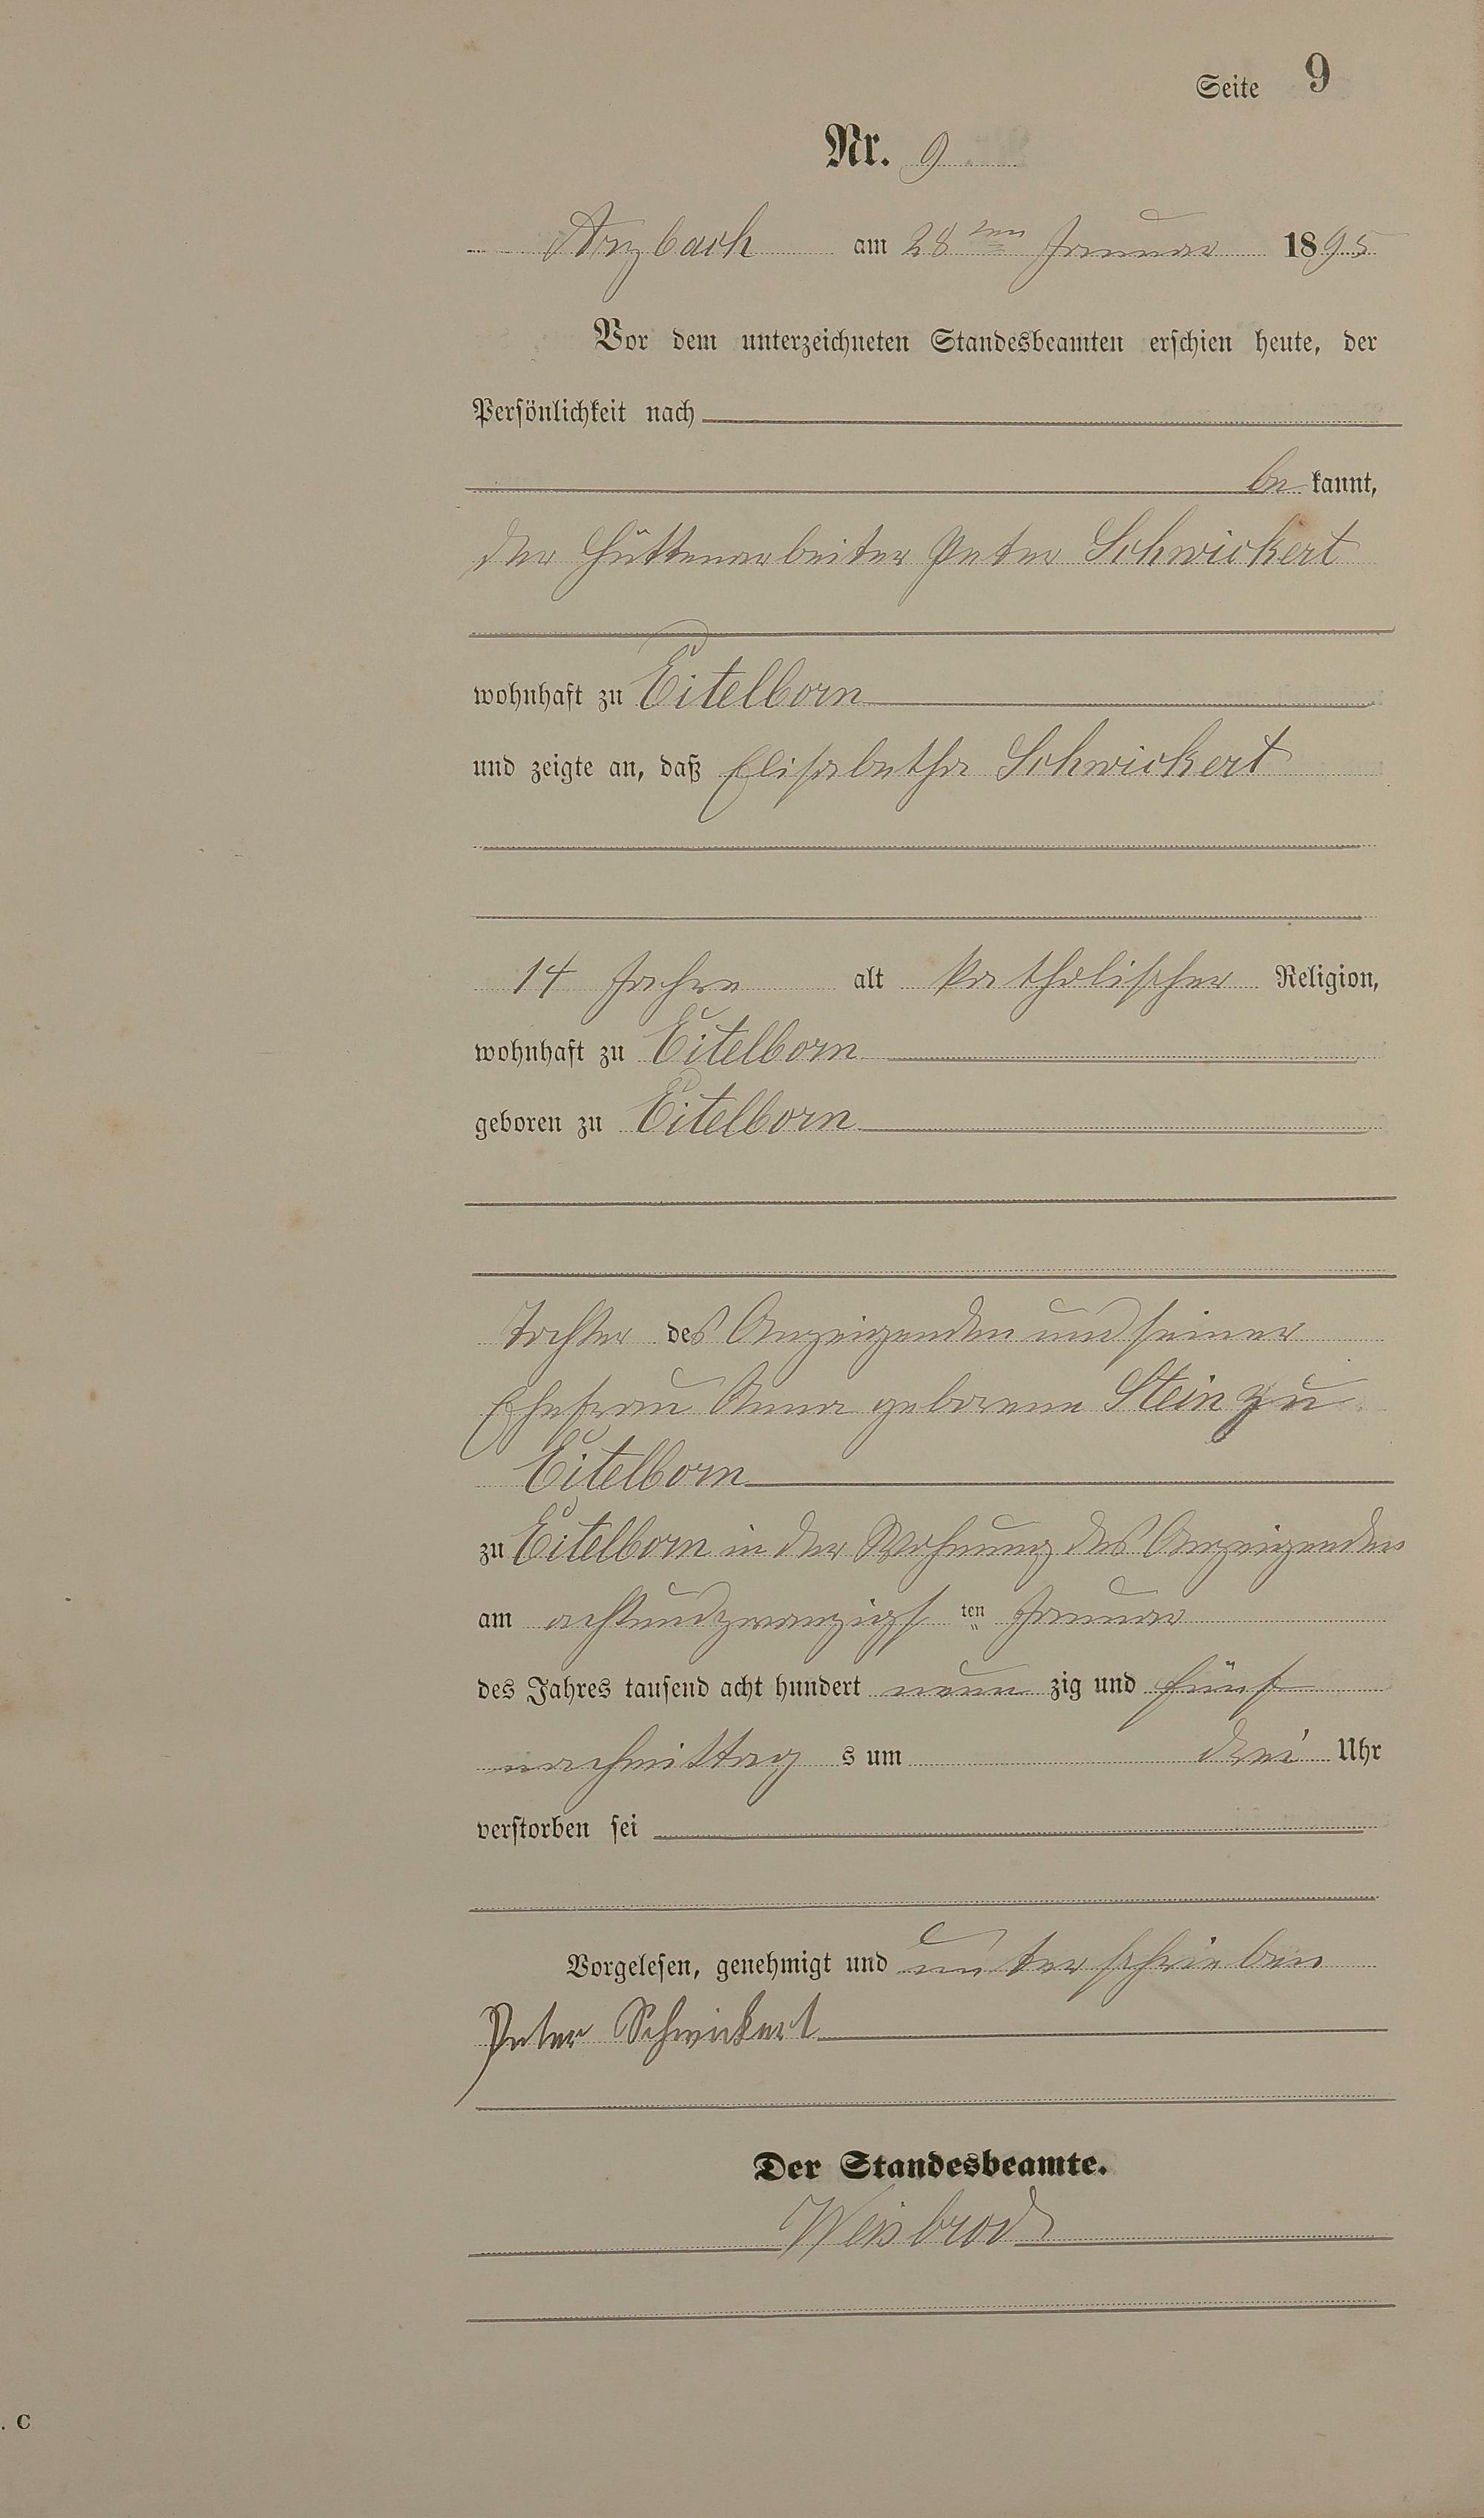 Seite 9
Nr. 9
Arzbach am 28ten Januar 1895
Vor dem unterzeichneten Standesbeamten erschien heute, der
Persönlichkeit nach
be kannt,
der Hüttenarbeiter Peter Schwickert
wohnhaft zu Eitelborn
und zeigte an, daß Elisabetha Schwickert
14 Jahre alt katholischer Religion,
wohnhaft zu Eitelborn
geboren zu Eitelborn
Tochter des Anzeigenden und seiner
Ehefrau Anna geborene Stein zu
Eitelborn
zu Eitelborn in der Wohnung des Anzeigenden
am achtundzwanzigs ten Januar
des Jahres tausend acht hundert neun zig und fünf
nachmittag s um drei Uhr
verstorben sei
Vorgelesen, genehmigt und unterschrieben
Peter Schwickert
Der Standesbeamte.
Weisbrod
. C